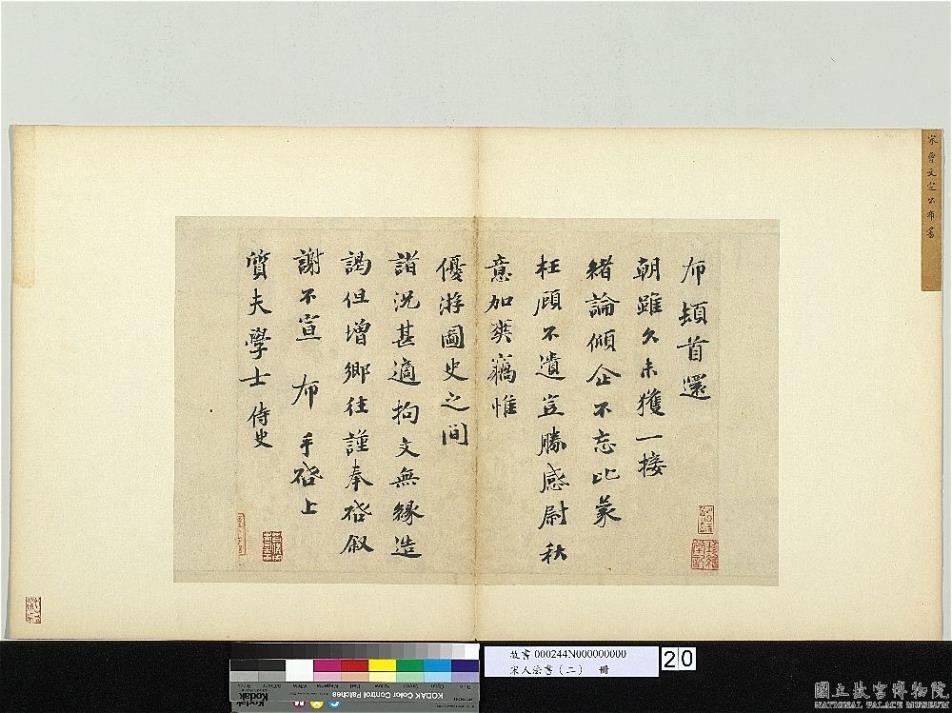 布頓首還
朝雖久未獲一接
緒論傾企不忘比蒙
枉顧不遺豈勝感尉秋
意加爽竊惟
優游圖史之間
諧況甚適拘文無緣造
謁但增鄉往謹奉啓敘
謝不宣 布 手啓上
質夫學士 侍史
宋曾文定公布書
故書 000244N000000000
宋人法書(二) 冊
20
Kodak
KODAK Color Control Patches
國立故宮博物院
NATIONAL PALACE MUSEUM